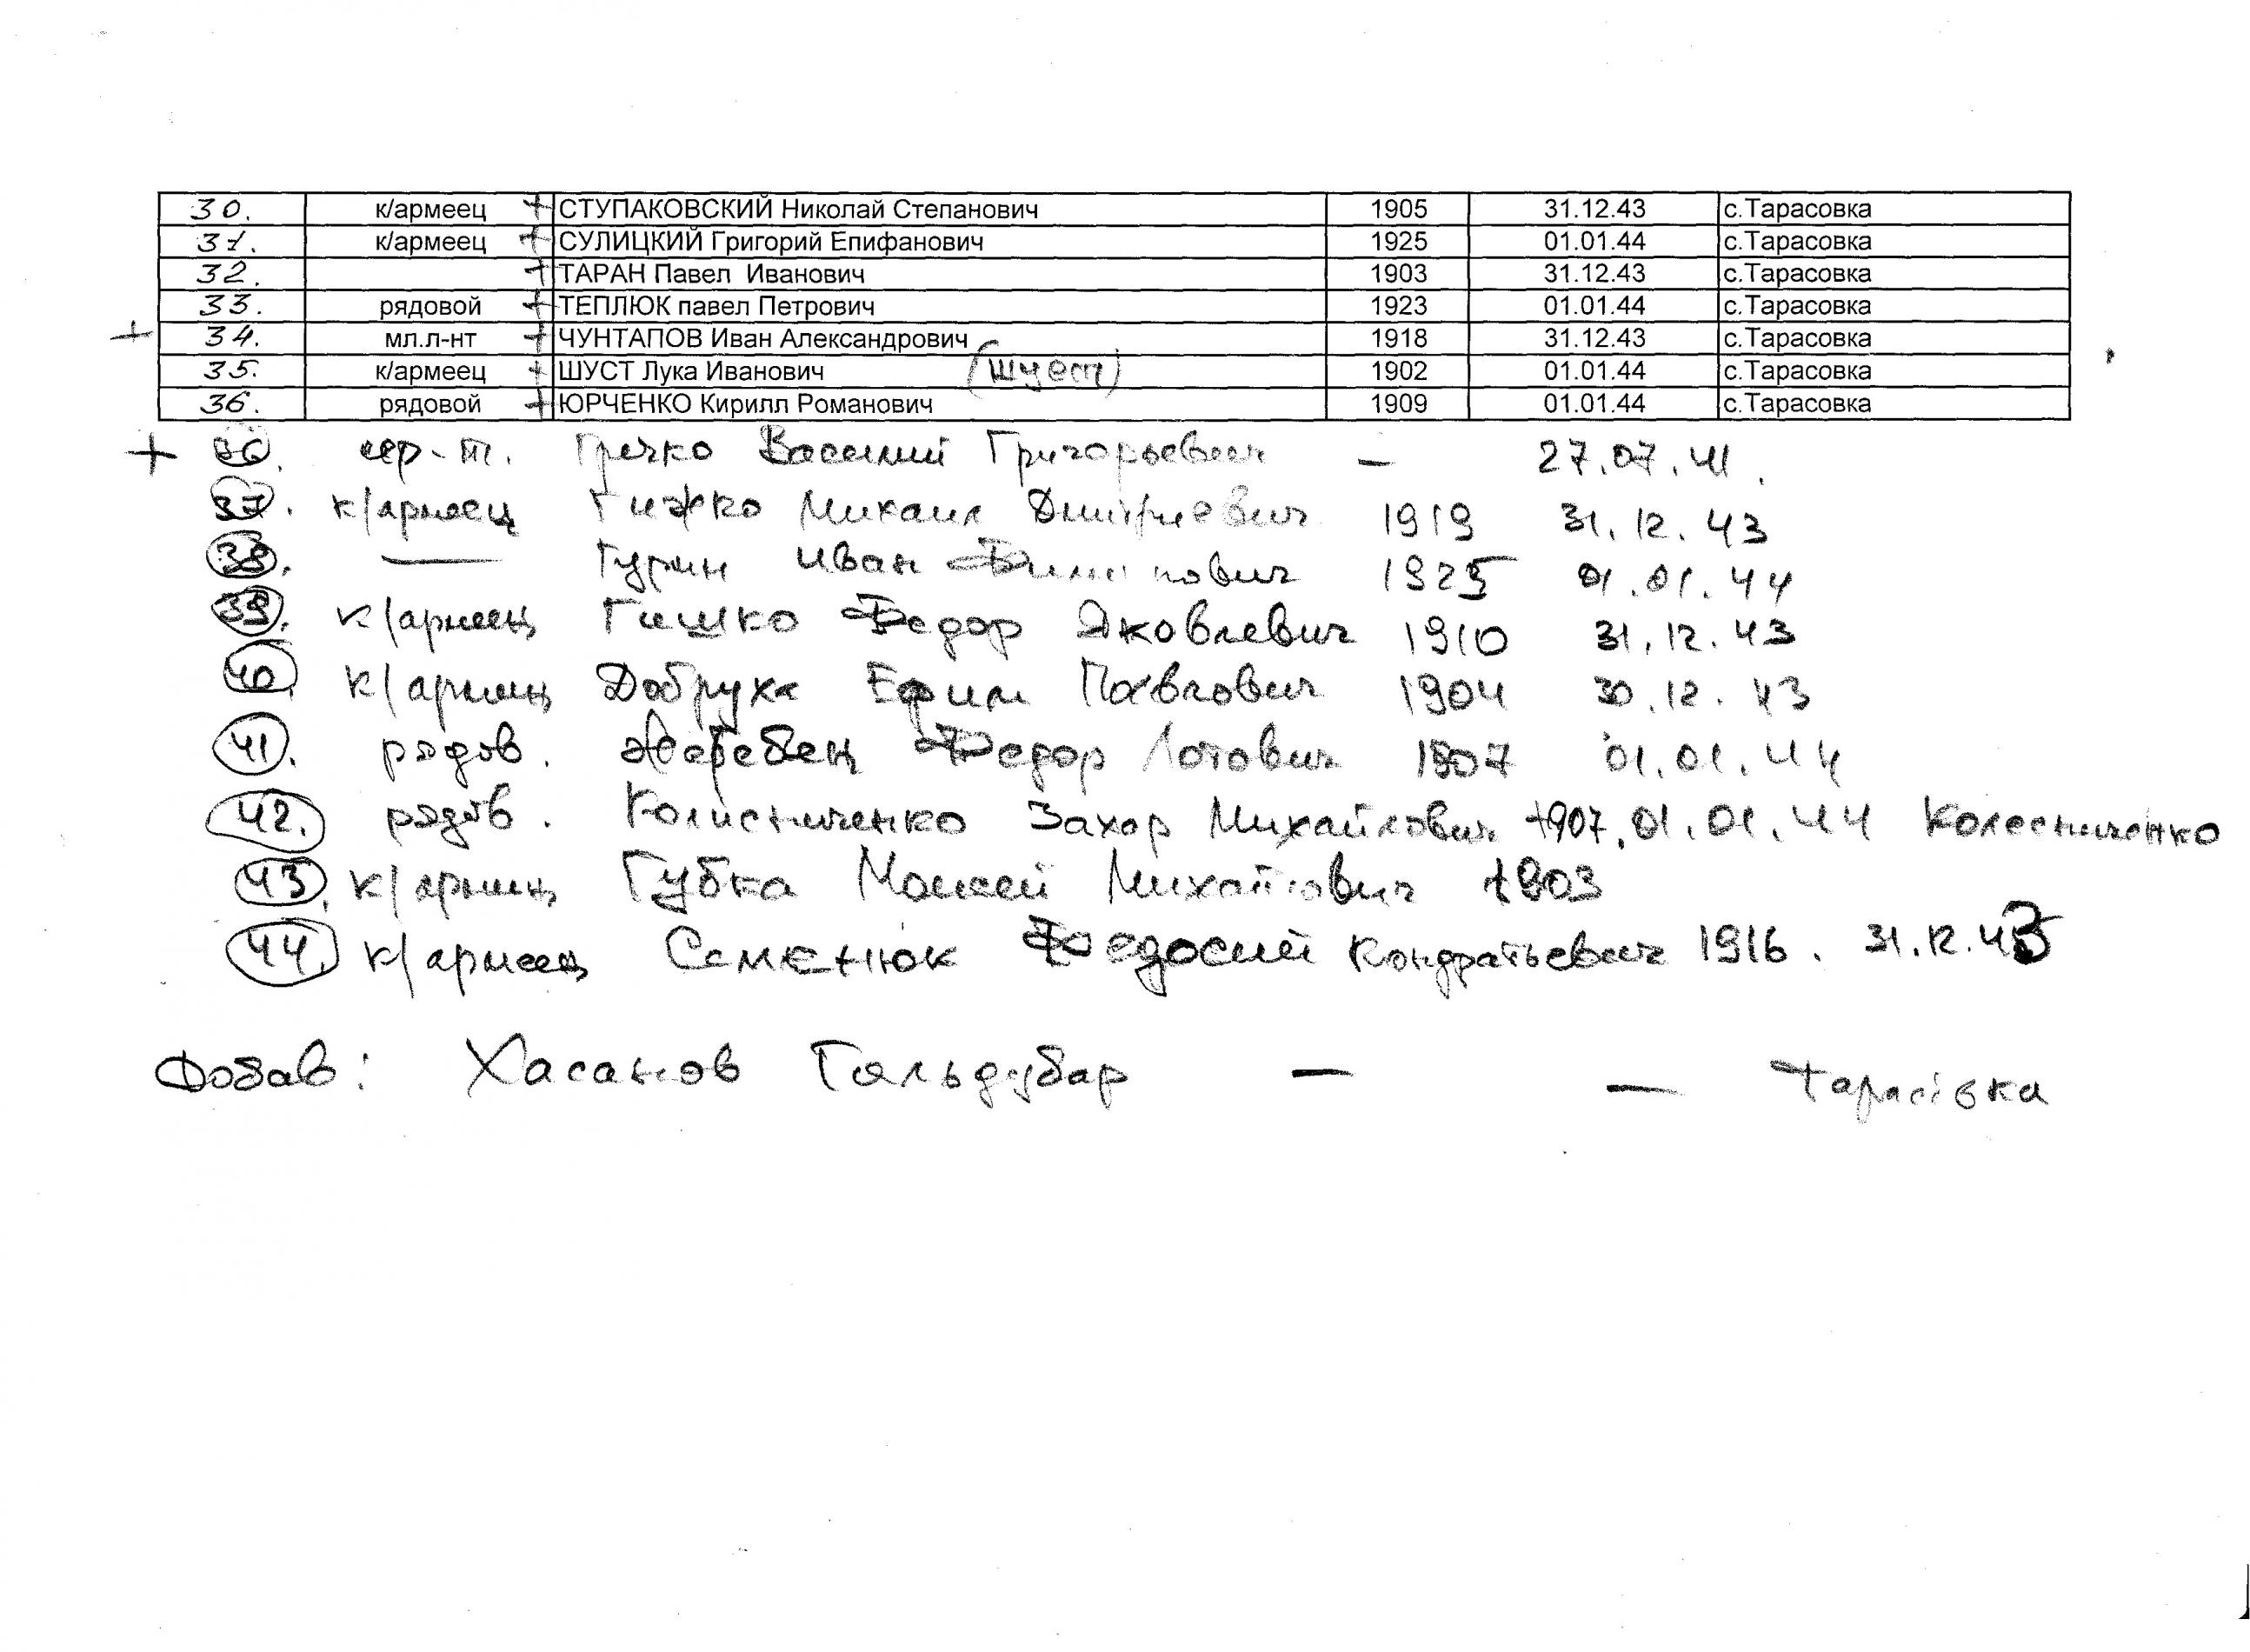 30. к/армеец + СТУПАКОВСКИЙ Николай Степанович 1905 31.12.43 с.Тарасовка
31. к/армеец + СУЛИЦКИЙ Григорий Епифанович 1925 01.01.44 с.Тарасовка
32. + ТАРАН Павел Иванович 1903 31.12.43 с.Тарасовка
33. рядовой + ТЕПЛЮК павел Петрович 1923 01.01.44 с.Тарасовка
+ 34. мл.л-нт + ЧУНТАПОВ Иван Александрович 1918 31.12.43 с.Тарасовка
35. к/армеец + ШУСТ Лука Иванович (шуст) 1902 01.01.44 с.Тарасовка
36. рядовой + ЮРЧЕНКО Кирилл Романович 1909 01.01.44 с.Тарасовка
+ 36. сер-т. Гречко Василий Григорьевич — 27.07.41.
37. к/армеец Гижко Михаил Дмитриевич 1919 31.12.43
38. — Гурин Иван Филиппович 1925 01.01.44
39. к/армеец Гишко Федор Яковлевич 1910 31.12.43
40. к/армеец Добруха Ефим Павлович 1904 30.12.43
41. рядов. Жеребец Федор Лотович 1907 01.01.44
42. рядов. Колисниченко Захар Михайлович 1907. 01.01.44 Колесниченко
43. к/армеец Губка Моисей Михайлович 1903
44. к/армеец Семенюк Федосий Кондратьевич 1916. 31.12.43
Добав: Хасанов Гальдубар — — Тарасівка